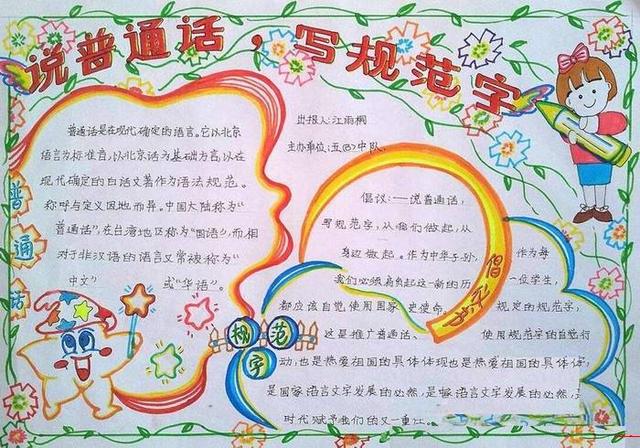 说普通话，写规范字
普通话是在现代确定的语言。它以北京
语言为标准音，以北京话为基础方言，以在
现代确定的白话文著作为语法规范。
称呼与定义因地而异。中国大陆称为“
普通话”，在台湾地区称为“国语”，而相
对于非汉语的语言又常被称为“
中文” 或“华语”。
普通话
出报人：江雨桐
主办单位：五(8)中队
倡议：——说普通话，
写规范字，从我们做起，从
身边做起。作为中华子孙， 作为每
我们必须肩负起这一新的历 一位学生，
都应该自觉使用国家 史使命。 规定的规范字，
这是推广普通话、 使用规范字的自觉行
动，也是热爱祖国的具体体现也是热爱祖国的具体体
是国家语言文字发展的必然，是 语言文字发展的必然，
时代赋予我们的又一重任。
倡议书
规范字